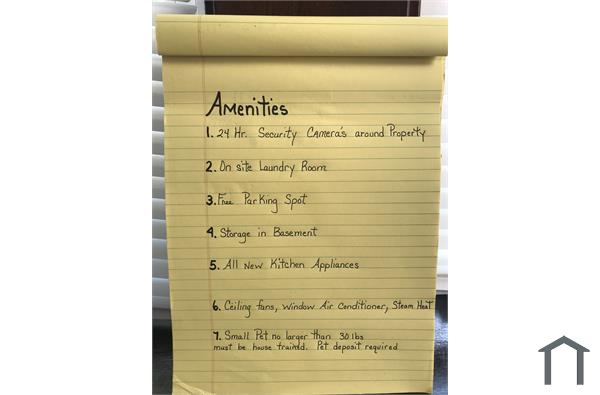 Amenities
1. 24 Hr. Security Camera's around Property
2. On site Laundry Room
3. Free Parking Spot
4. Storage in Basement
5. All New Kitchen Appliances
6. Ceiling fans, Window Air Conditioner, Steam Heat
7. Small Pet no larger than 30 lbs
must be house traind. Pet deposit required